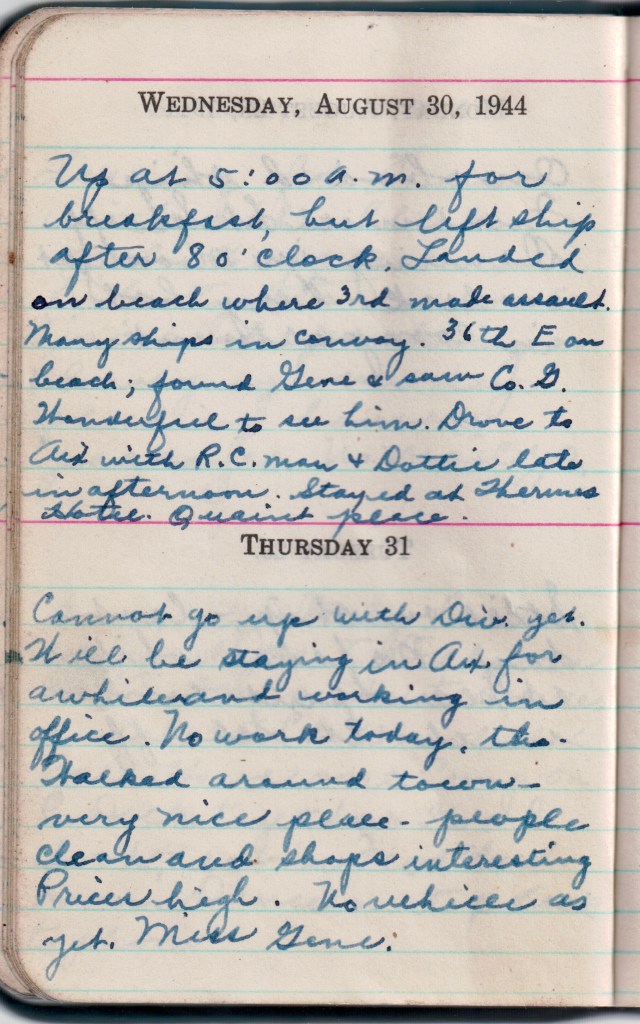 WEDNESDAY, AUGUST 30, 1944
Up at 5:00 a.m. for
breakfast, but left ship
after 8 o'clock. Landed
on beach where 3rd made assault.
Many ships in convoy. 36th E on
beach; found Gene & saw Co. G.
Wonderful to see him. Drove to
Aix with R.C. man & Dottie late
in afternoon. Stayed at Thermes
Hotel. Quaint place.
THURSDAY 31
Cannot go up with Div. yet.
Will be staying in Aix for
awhile and working in
office. No work today, tho.
Walked around town -
very nice place - people
clean and shops interesting
Prices high. No vehicle as
yet. Miss Gene.